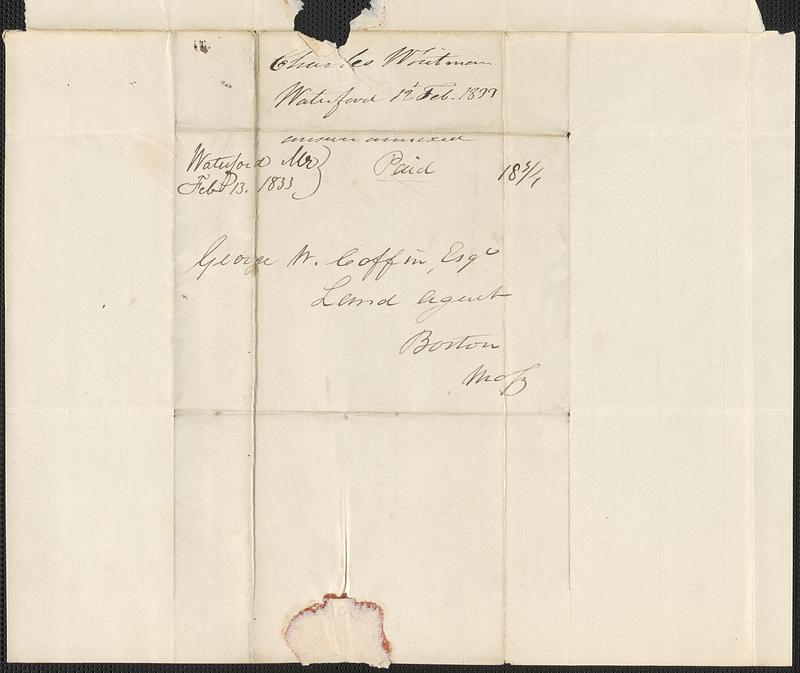 Charles Whitman
Waterford 12 Feb. 1833
answer annexed
Waterford Me
Feb 13. 1833
Paid
18 3/4
George W. Coffin, Esqr
Land Agent
Boston
Mass